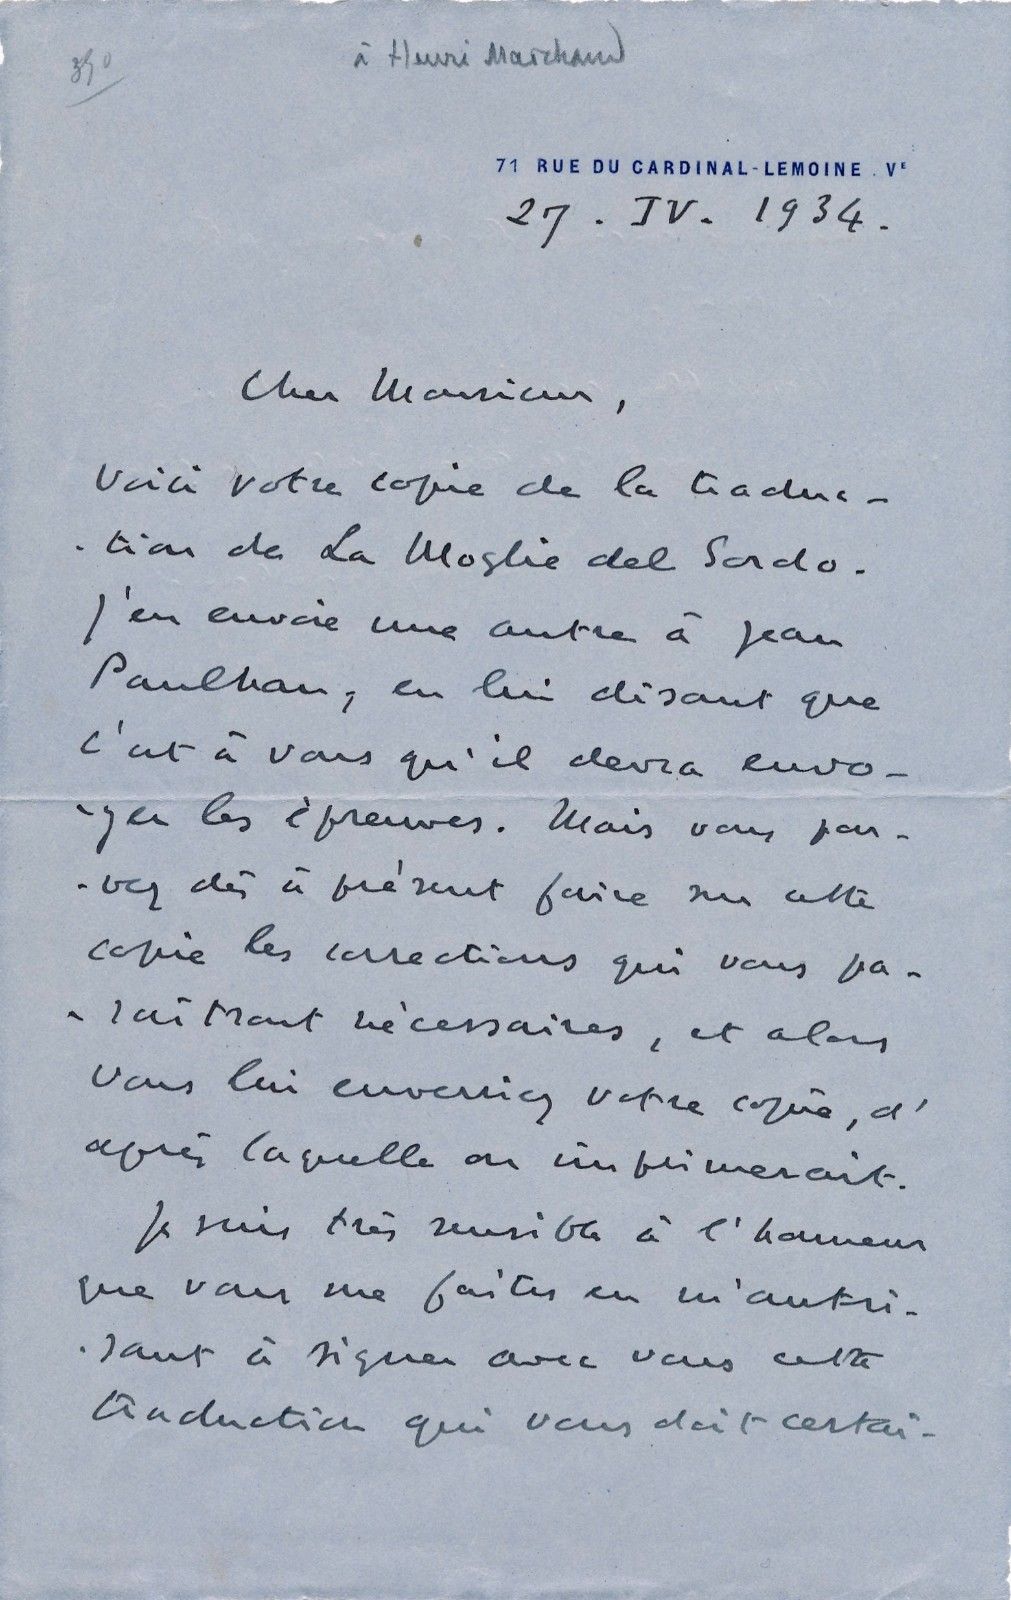 390
à Henri Marchand
71 RUE DU CARDINAL-LEMOINE . Vᴱ
27 . IV . 1934 .
Cher Monsieur,
Voici votre copie de la traduc-
-tion de La Moglie del Sordo.
J'en envoie une autre à Jean
Paulhan, en lui disant que
c'est à vous qu'il devra envo-
-yer les épreuves. Mais vous pou-
-vez dès à présent faire sur cette
copie les corrections qui vous pa-
-raîtront nécessaires, et alors
vous lui enverriez votre copie, d'
après laquelle on imprimerait.
Je suis très sensible à l'honneur
que vous me faites en m'autori-
-sant à signer avec vous cette
traduction qui vous doit certai-